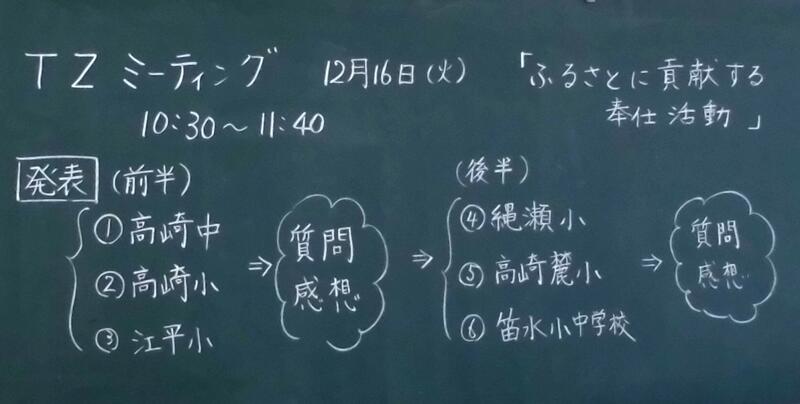 TZ ミーティング 12月16日(火) 「ふるさとに貢献する
10:30～11:40 奉仕活動」
発表 (前半)
①高崎中
②高崎小
③江平小
⇒
質問
感想
⇒
(後半)
④縄瀬小
⑤高崎麓小
⑥笛水小中学校
⇒
質問
感想